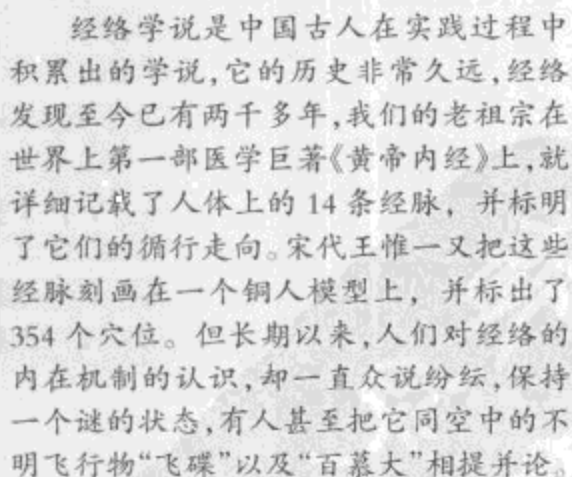 经络学说是中国古人在实践过程中
积累出的学说,它的历史非常久远,经络
发现至今已有两千多年,我们的老祖宗在
世界上第一部医学巨著《黄帝内经》上,就
详细记载了人体上的 14 条经脉，并标明
了它们的循行走向。宋代王惟一又把这些
经脉刻画在一个铜人模型上，并标出了
354 个穴位。但长期以来,人们对经络的
内在机制的认识,却一直众说纷纭,保持
一个谜的状态,有人甚至把它同空中的不
明飞行物“飞碟”以及“百慕大”相提并论。